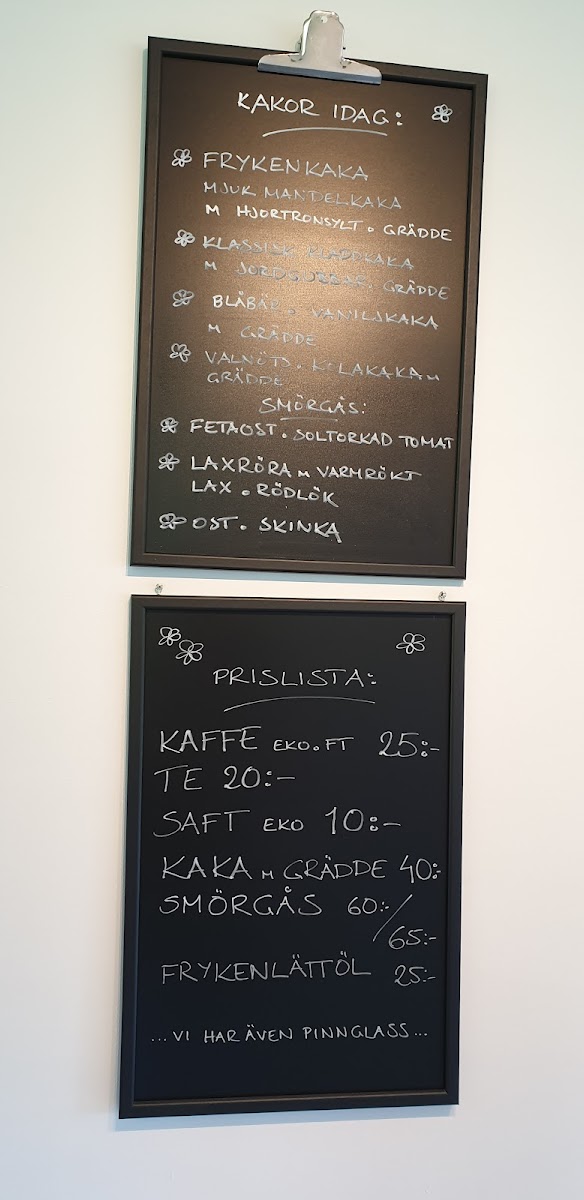 KAKOR IDAG:
FRYKENKAKA
MJUK MANDELKAKA
M HJORTRONSYLT. GRÄDDE
KLASSISK KLADDKAKA
M JORDGUBBAR. GRÄDDE
BLÅBÄR. VANILJKAKA
M GRÄDDE
VALNÖTS. KOLAKAKA M
GRÄDDE
SMÖRGÅS:
FETAOST. SOLTORKAD TOMAT
LAXRÖRA M VARMRÖKT
LAX. RÖDLÖK
OST. SKINKA
PRISLISTA:
KAFFE EKO.FT 25:-
TE 20:-
SAFT EKO 10:-
KAKA M GRÄDDE 40:-
SMÖRGÅS 60:-/
65:-
FRYKENLÄTTÖL 25:-
...VI HAR ÄVEN PINNGLASS...